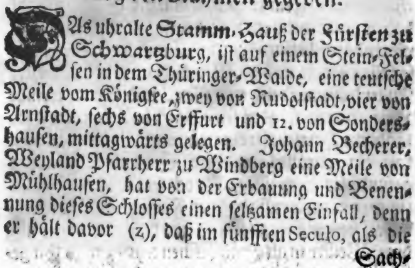 DAs uhralte Stamm-Hauß der Fürsten zu
Schwartzburg, ist auf einem Stein-Fel-
sen in dem Thüringer-Walde, eine teutsche
Meile vom Königsee, zwey von Rudolstadt, vier von
Arnstadt, sechs von Erffurt und 12. von Sonders-
hausen, mittagwärts gelegen. Johann Becherer,
Weyland Pfarrherr zu Windberg eine Meile von
Mühlhausen, hat von der Erbauung und Benen-
nung dieses Schlosses einen seltzamen Einfall, denn
er hält davor (z), daß im fünfften Seculo, als die
Sach-